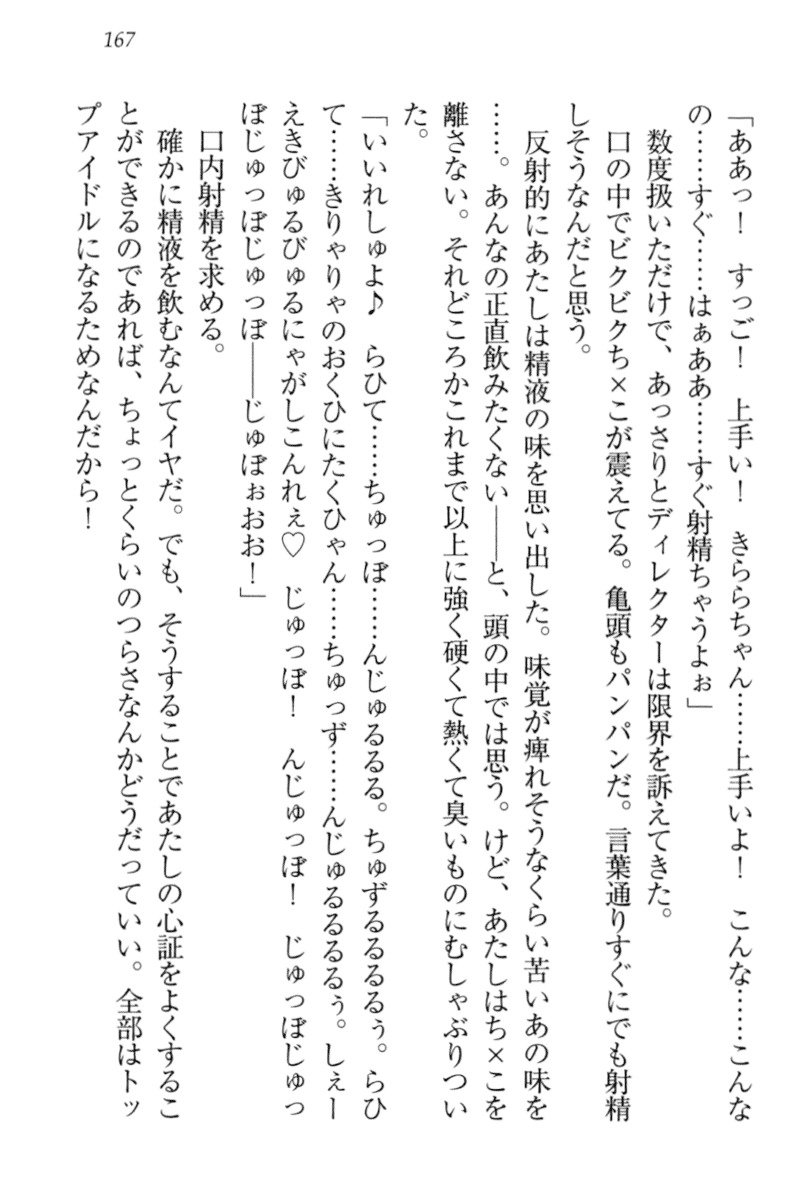 167
「ああっ！　すっご！　上手い！　きららちゃん……上手いよ！　こんな……こんな
の……すぐ……はぁああ……すぐ射精ちゃうよぉ」
数度扱いただけで、あっさりとディレクターは限界を訴えてきた。
口の中でビクビクち×こが震えてる。亀頭もパンパンだ。言葉通りすぐにでも射精
しそうなんだと思う。
反射的にあたしは精液の味を思い出した。味覚が痺れそうなくらい苦いあの味を
……。あんなの正直飲みたくない――と、頭の中では思う。けど、あたしはち×こを
離さない。それどころかこれまで以上に強く硬くて熱くて臭いものにむしゃぶりつい
た。
「いいれしゅよ♪　らひて……ちゅっぽ……んじゅるるる。ちゅずるるるるぅ。らひ
て……きりゃりゃのおくひにたくひゃん……ちゅっず……んじゅるるるるぅ。しぇー
えきびゅるびゅるにゃがしこんれぇ♡　じゅっぽ！　んじゅっぽ！　じゅっぽじゅっ
ぽじゅっぽじゅっぽ――じゅぽぉおお！」
口内射精を求める。
確かに精液を飲むなんてイヤだ。でも、そうすることであたしの心証をよくするこ
とができるのであれば、ちょっとくらいのつらさなんかどうだっていい。全部はトッ
プアイドルになるためなんだから！